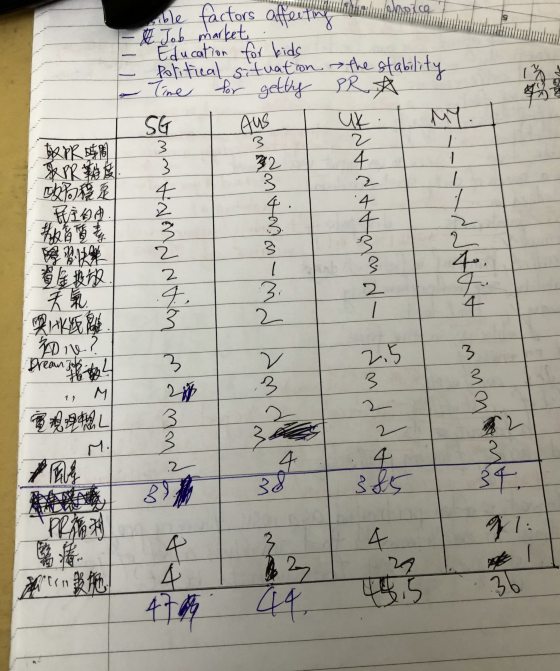 factors affecting choice
- Job market
- Education for kids
- Political situation → the stability
- Time for getting PR ☆
SG AUS UK. MY.
取PR時間 3 3 2 1
取PR難度 3 2 4 1
政局穩定 4 3 2 1
民主自由 2 4. 4 1
教育質素 3 3. 4 2
學習快樂 2 3 3 2
資金投放 2 1 3 4.
天氣 4. 3. 2 4.
與HK距離 3 2 1 4
初心?
Dream 指數 L 3 2 2.5 3
〃 M 2 3 3 3
實現理想 L 3 2 2 3
M. 3 3 2 2
風景 2 4 4 3
39 38 38.5 34.
PR福利 4 3 4 1.
醫療 4 2 2 1
47 44. 45.5 36